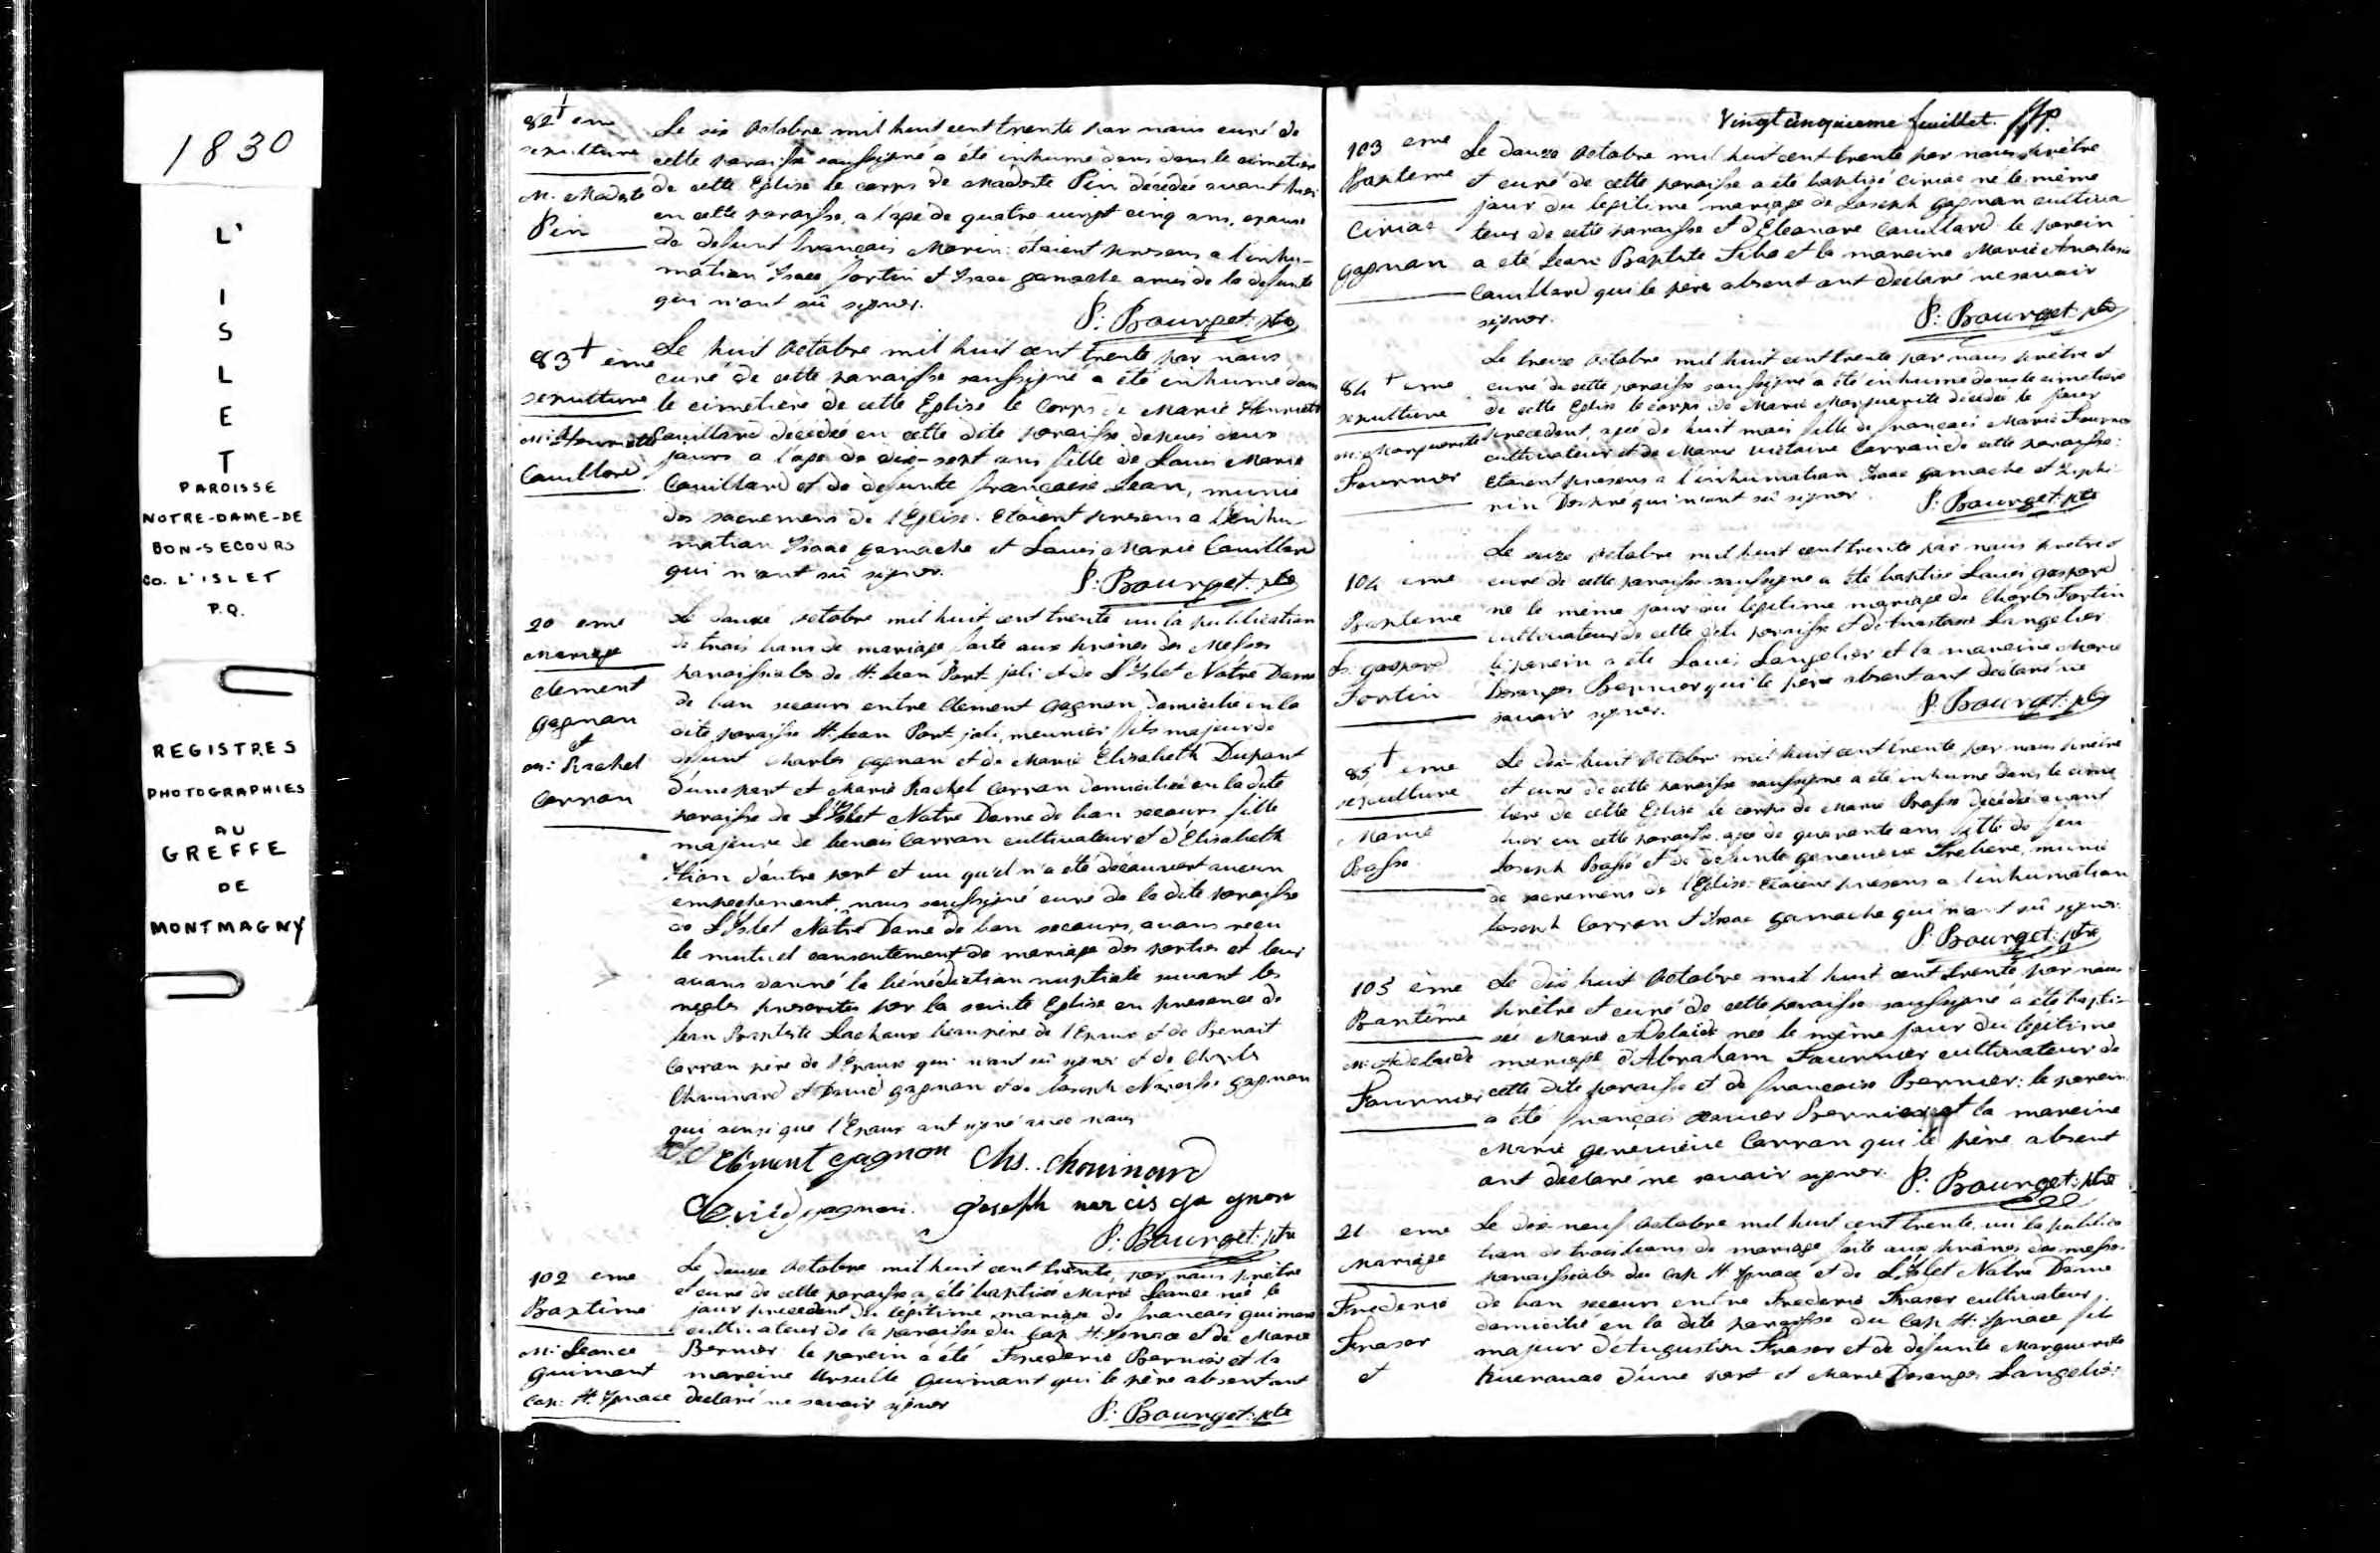 1830
L'
I
S
L
E
T
PAROISSE
NOTRE-DAME-DE
BON-SECOURS
CO. L'ISLET
P.Q.
REGISTRES
PHOTOGRAPHIES
AU
GREFFE
DE
MONTMAGNY
82 eme
sepulture
M. Modeste
Pin
Le six octobre mil huit cent trente par nous curé de
cette paroisse soussigné a été inhumé dans dans le cimetiere
de cette Eglise le corps de Modeste Pin décédée avant hier
en cette paroisse, a l'age de quatre-vingt cinq ans, epouse
de defunt français Morin: étaient presens a l'inhu-
mation Isaac fortin et Isaac gamache amis de la defunte
qui n'ont sû signer.
P: Bourget: ptre
83 ème
sepulture
M. Henriette
Couillard
Le huit octobre mil huit cent trente par nous
curé de cette paroisse soussigné a été inhumé dans
le cimetière de cette Eglise le corps de Marie Henriette
Couillard décédée en cette dite paroisse depuis deux
jours a l'age de dix-sept ans fille de Louis Marie
Couillard et de defunte françoise Jean, munie
des sacremens de l'Eglise. Etaient presens a l'inhu-
mation Isaac gamache et Louis Marie Couillard
qui n'ont sû signer.
P: Bourget: ptre
20 eme
Mariage
Clement
gagnon
et
M: Rachel
Carron
Le douze octobre mil huit cent trente vu la publication
de trois bans de mariage faite aux prônes des Messes
paroissiales de St. Jean Port joli et de L'Islet Notre Dame
de bon secours entre Clement gagnon domicilié en la
dite paroisse St. Jean Port joli, meunier fils majeur de
defunt Charles gagnon et de Marie Elisabeth Dupont
d'une part et Marie Rachel Carron domiciliée en la dite
paroisse de L'Islet Notre Dame de bon secours fille
majeure de benois Carron cultivateur et d'Elisabeth
d'autre part et vu qu'il n'a été découvert aucun
empechement, nous soussigné curé de la dite paroisse
de L'Islet Notre Dame de bon secours, avons reçu
le mutuel consentement de mariage des parties et leur
avons donné la bénédiction nuptiale suivant les
regles prescrites par la sainte Eglise en presence de
Jean Baptiste Lachaux beaupère de l'Epoux et de Benoit
Carron père de l'Epouse qui n'ont sû signer et de Charles
Chouinard et David gagnon et de Joseph Narcisse gagnon
qui ainsi que l'Epoux ont signé avec nous
Clement gagnon Chs. Chouinard
David gagnon. Joseph narcis gagnon
P: Bourget: ptre
102 eme
Baptême
M: Leance
Guimont
Cap: St. Ignace
Le douze octobre mil huit cent trente, par nous prêtre
et curé de cette paroisse a été baptisée Marie Leance née le
jour precedent du légitime mariage de francois guimont
cultivateur de la paroisse du Cap St. Ignace et de Marie
Bernier le parein a été Frederic Bernier et la
mareine Ursulle Guimont qui le père absent ont
declaré ne savoir signer
P: Bourget: ptre
Vingt cinquieme feuillet.
103 eme
Bapteme
Ciriac
gagnon
Le douze octobre mil huit cent trente par nous prêtre
et curé de cette paroisse a été baptisé Ciriac né le même
jour du legitime mariage de Joseph gagnon cultiva
teur de cette paroisse et d'Eleonore Couillard le parein
a été Jean Baptiste et la mareine Marie Anastasie
Couillard qui le père absent ont déclaré ne savoir
signer.
P: Bourget: ptre
84 eme
sepulture
M: Marguerite
Fournier
Le treize octobre mil huit cent trente par nous prêtre et
curé de cette paroisse soussigné a été inhumé dans le cimetiere
de cette Eglise le corps de Marie Marguerite décédée le jour
precedent, agée de huit mois fille de français Marie Fournier
cultivateur et de Marie victoire Carron de cette paroisse:
etaient presens a l'inhumation Isaac gamache et Zephi-
rin Després qui n'ont sû signer.
P: Bourget: ptre
104 eme
Bapteme
Ls. gaspard
Fortin
Le seize octobre mil huit cent trente par nous pretre et
curé de cette paroisse soussigné a été baptisé Louis gaspard
né le même jour du légitime mariage de Charles Fortin
cultivateur de cette dite paroisse et d'Anastasie Langelier
le parein a été Louis Langelier et la mareine Marie
Desanges Bernier qui le pere absent ont declaré ne
savoir signer.
P: Bourget: ptre
85 eme
sepulture
Marie
Basse
Le dix-huit octobre mil huit cent trente par nous prêtre
et curé de cette paroisse soussigné a été inhumé dans le cime
tiere de cette Eglise le corps de Marie Basse décédée avant
hier en cette paroisse agée de quarante ans fille de feu
Joseph Basse et de defunte genevieve, munie
de sacremens de l'Eglise: Etaient presens a l'inhumation
Joseph Carron et Isaac gamache qui n'ont sû signer.
P: Bourget: ptre
105 ème
Baptême
M: Adelaide
Fournier
Le dix huit octobre mil huit cent trente par nous
prêtre et curé de cette paroisse soussigné a été bapti-
sée Marie Adelaide née le même jour du légitime
mariage d'Abraham Fournier cultivateur de
cette dite paroisse et de françoise Bernier: le parein
a été français xavier Bernier et la mareine
Marie genevieve Carron qui le père absent
ont déclaré ne savoir signer.
P: Bourget: ptre
21 eme
Mariage
Frederic
Fraser
et
Le dix neuf octobre mil huit cent trente, vu la publica
tion de trois bans de mariage faite aux prônes des messes
paroissiales du Cap St. Ignace et de L'Islet Notre Dame
de bon secours entre Frederic Fraser cultivateur
domicilié en la dite paroisse du Cap St: Ignace fils
majeur d'Augustin Fraser et de défunte Marguerite
d'une part et Marie Desanges Langelier